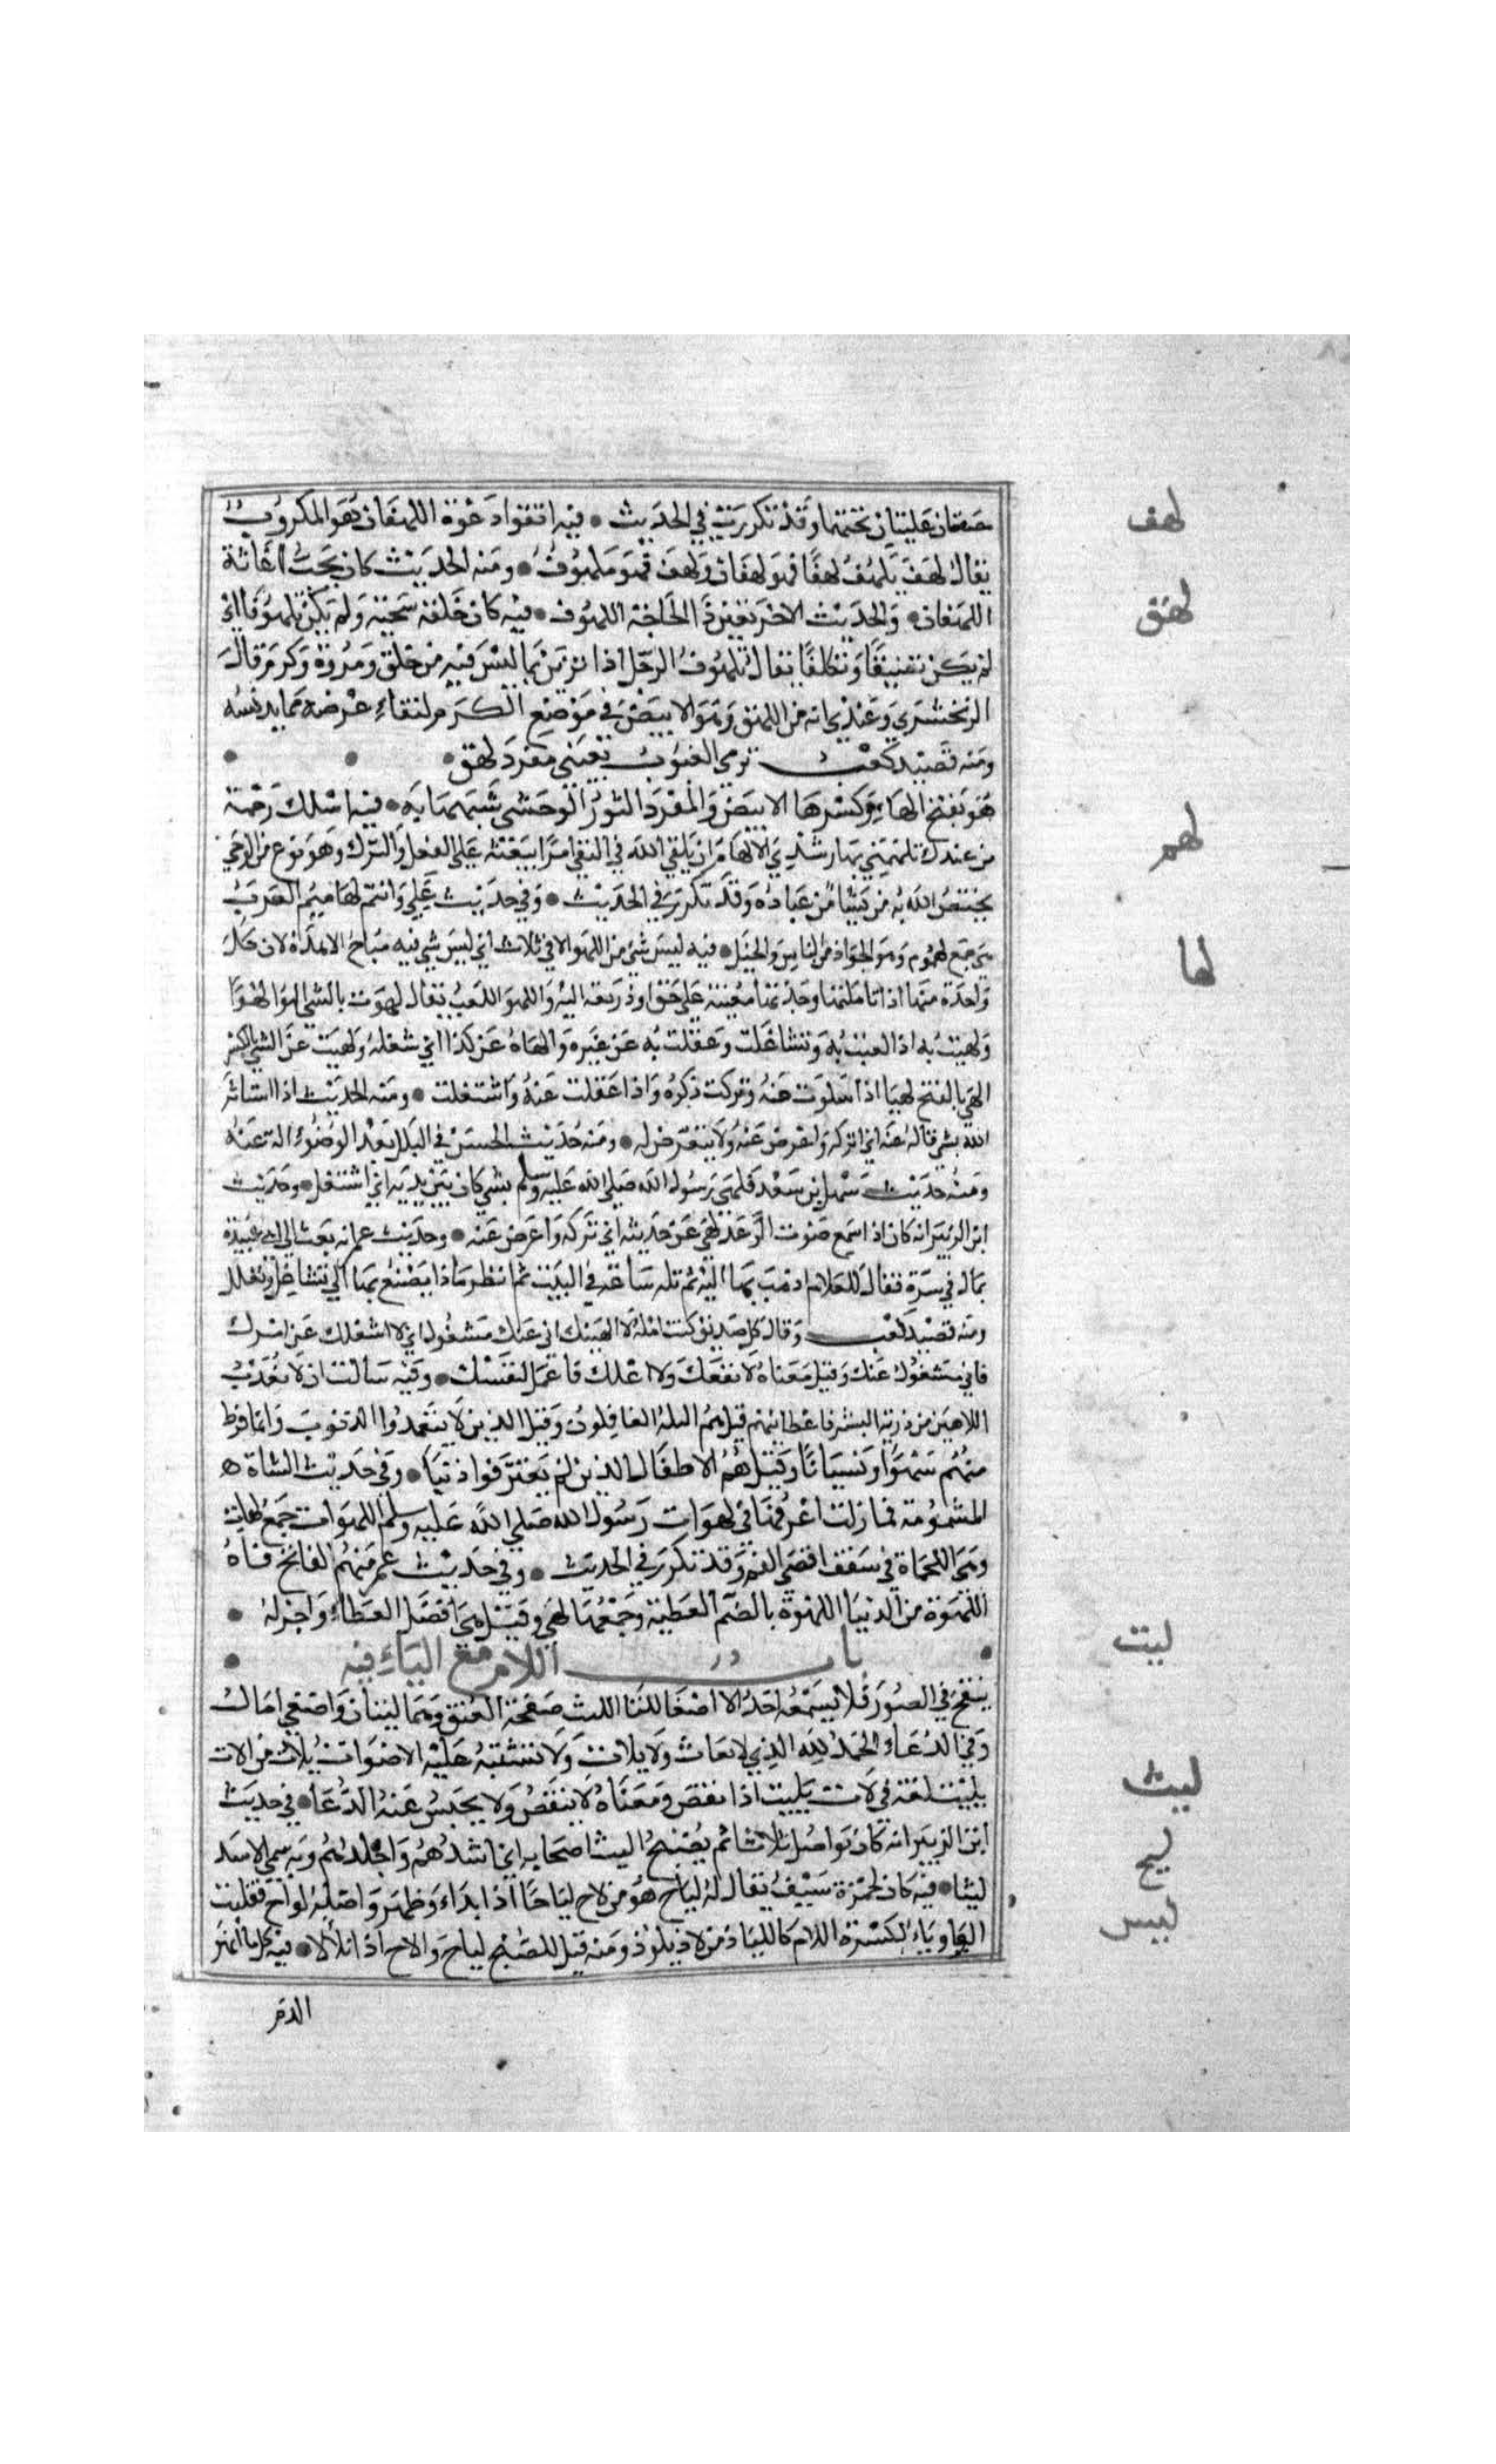 مضغتان عليتان تحتهما وقد تكررت في الحديث • فيه اتقوا دعوة اللهفان هو المكروب
لهف
يقال لهف يلهف لهفا فهو لهفان ولهف فهو ملهوف • ومنه الحديث كان يحب اغاثة
اللهفان • والحديث الاخر تعين ذا الحاجة الملهوف • فيه كان خلقه سجية ولم يكن تلهوقا اي
لهق
لم يكن تصنعا وتكلفا يقال تلهوق الرجل اذا تزين بما ليس فيه من خلق ومروة وكرم قال
الزمخشري وعندي انه من اللهق وهو الابيض في موضع الكرم لنقاء عرضه مما يدنسه
ومنه قصيد كعب ترمي الغيوب بعيني مفرد لهق •
هو بفتح الهاء وكسرها الابيض والمفرد الثور الوحشي شبهها به • فيه اسلك رحمة
من عندك تلهمني بها رشدي الالهام ان يلقي الله في النفس امرا يبعثه على الفعل والترك وهو نوع من الوحي
لهم
يختص الله به من يشا من عباده وقد تكرر في الحديث • وفي حديث علي وانتم لهاميم العرب
هي جمع لهموم وهو الجواد من الناس والخيل • فيه ليس شي من اللهو الا في ثلاث اي ليس شي فيه مباح الا هذه لان كل
لها
واحدة منها اذا تاملتها وجدتها معينة على حق او ذريعة اليه واللهو اللعب يقال لهوت بالشي الهوا لهوا
ولهيت به اذا لعبت به وتشاغلت وغفلت به عن غيره والهاه عن كذا اي شغله ولهيت عن الشي بالكسر
الهي بالفتح لهيا اذا سلوت عنه وتركت ذكره واذا غفلت عنه واشتغلت • ومنه الحديث اذا استاثر
الله بشي فاله عنه اي اتركه واعرض عنه ولا تتعرض له • ومنه حديث الحسن في البلل بعد الوضوء اله عنه
ومنه حديث سهل بن سعد فلهي رسول الله صلي الله عليه وسلم بشي كان بين يديه اي اشتغل • وحديث
ابن الزبير انه كان اذا سمع صوت الرعد لهي عن حديثه اي تركه واعرض عنه • وحديث عمر انه بعث الي ابي عبيدة
بمال في صرة فقال للغلام اذهب بها اليه ثم تله ساعة في البيت ثم انظر ماذا يصنع بها اي تشاغل وتعلل
ومنه قصيد كعب وقال كل صديق كنت امله لا الهينك اني عنك مشغول اي لا اشغلك عن امرك
فاني مشغول عنك وقيل معناه لا انفعك ولا اعلك فاعمل لنفسك • وفيه سالت ان لا تعذب
اللاهين من ذرية البشر فاعطانيهم قيل هم البله الغافلون وقيل الذين لا يتعمدوا الذنوب وانما فرط
منهم سهوا او نسيانا وقيل هم الاطفال الذين لم يقترفوا ذنبا • وفي حديث الشاة
المسمومة فما زلت اعرفها في لهوات رسول الله صلي الله عليه وسلم اللهوات جمع لهاة
وهي اللحمات في سقف اقصي الفم وقد تكرر في الحديث • وفي حديث عمر منهم الفاتح فاه
اللهوة من الدنيا اللهوة بالضم العطية وجمعها لهي وقيل هي افضل العطاء واجزله •
باب اللام مع الياء فيه
ليت
ينفخ في الصور فلا يسمعه احد الا اصغا ليتا الليت صفحة العنق وهما ليتان واصغي امال
وفي الدعاء الحمد لله الذي لا يفات ولا يلات ولا تشتبه عليه الاصوات يلات من الات
يليت لغة في لات يليت اذا نقص ومعناه لا ينقص ولا يحبس عنه الدعا • في حديث
ليث
ابن الزبير انه كان يواصل ثلاثا ثم يصبح اليث اصحابه اي اشدهم واجلدهم وبه سمي الاسد
ليثا • فيه كان لحمزة سيف يقال له لياح هو من لاح لياحا اذا بدا وظهر واصله لواح فقلبت
ليح
الواو ياء لكسرة اللام كاللياذ من لاذ يلوذ ومنه قيل للصبح لياح والاح اذا تلألا • فيه كل ما انهر
ليس
الدم